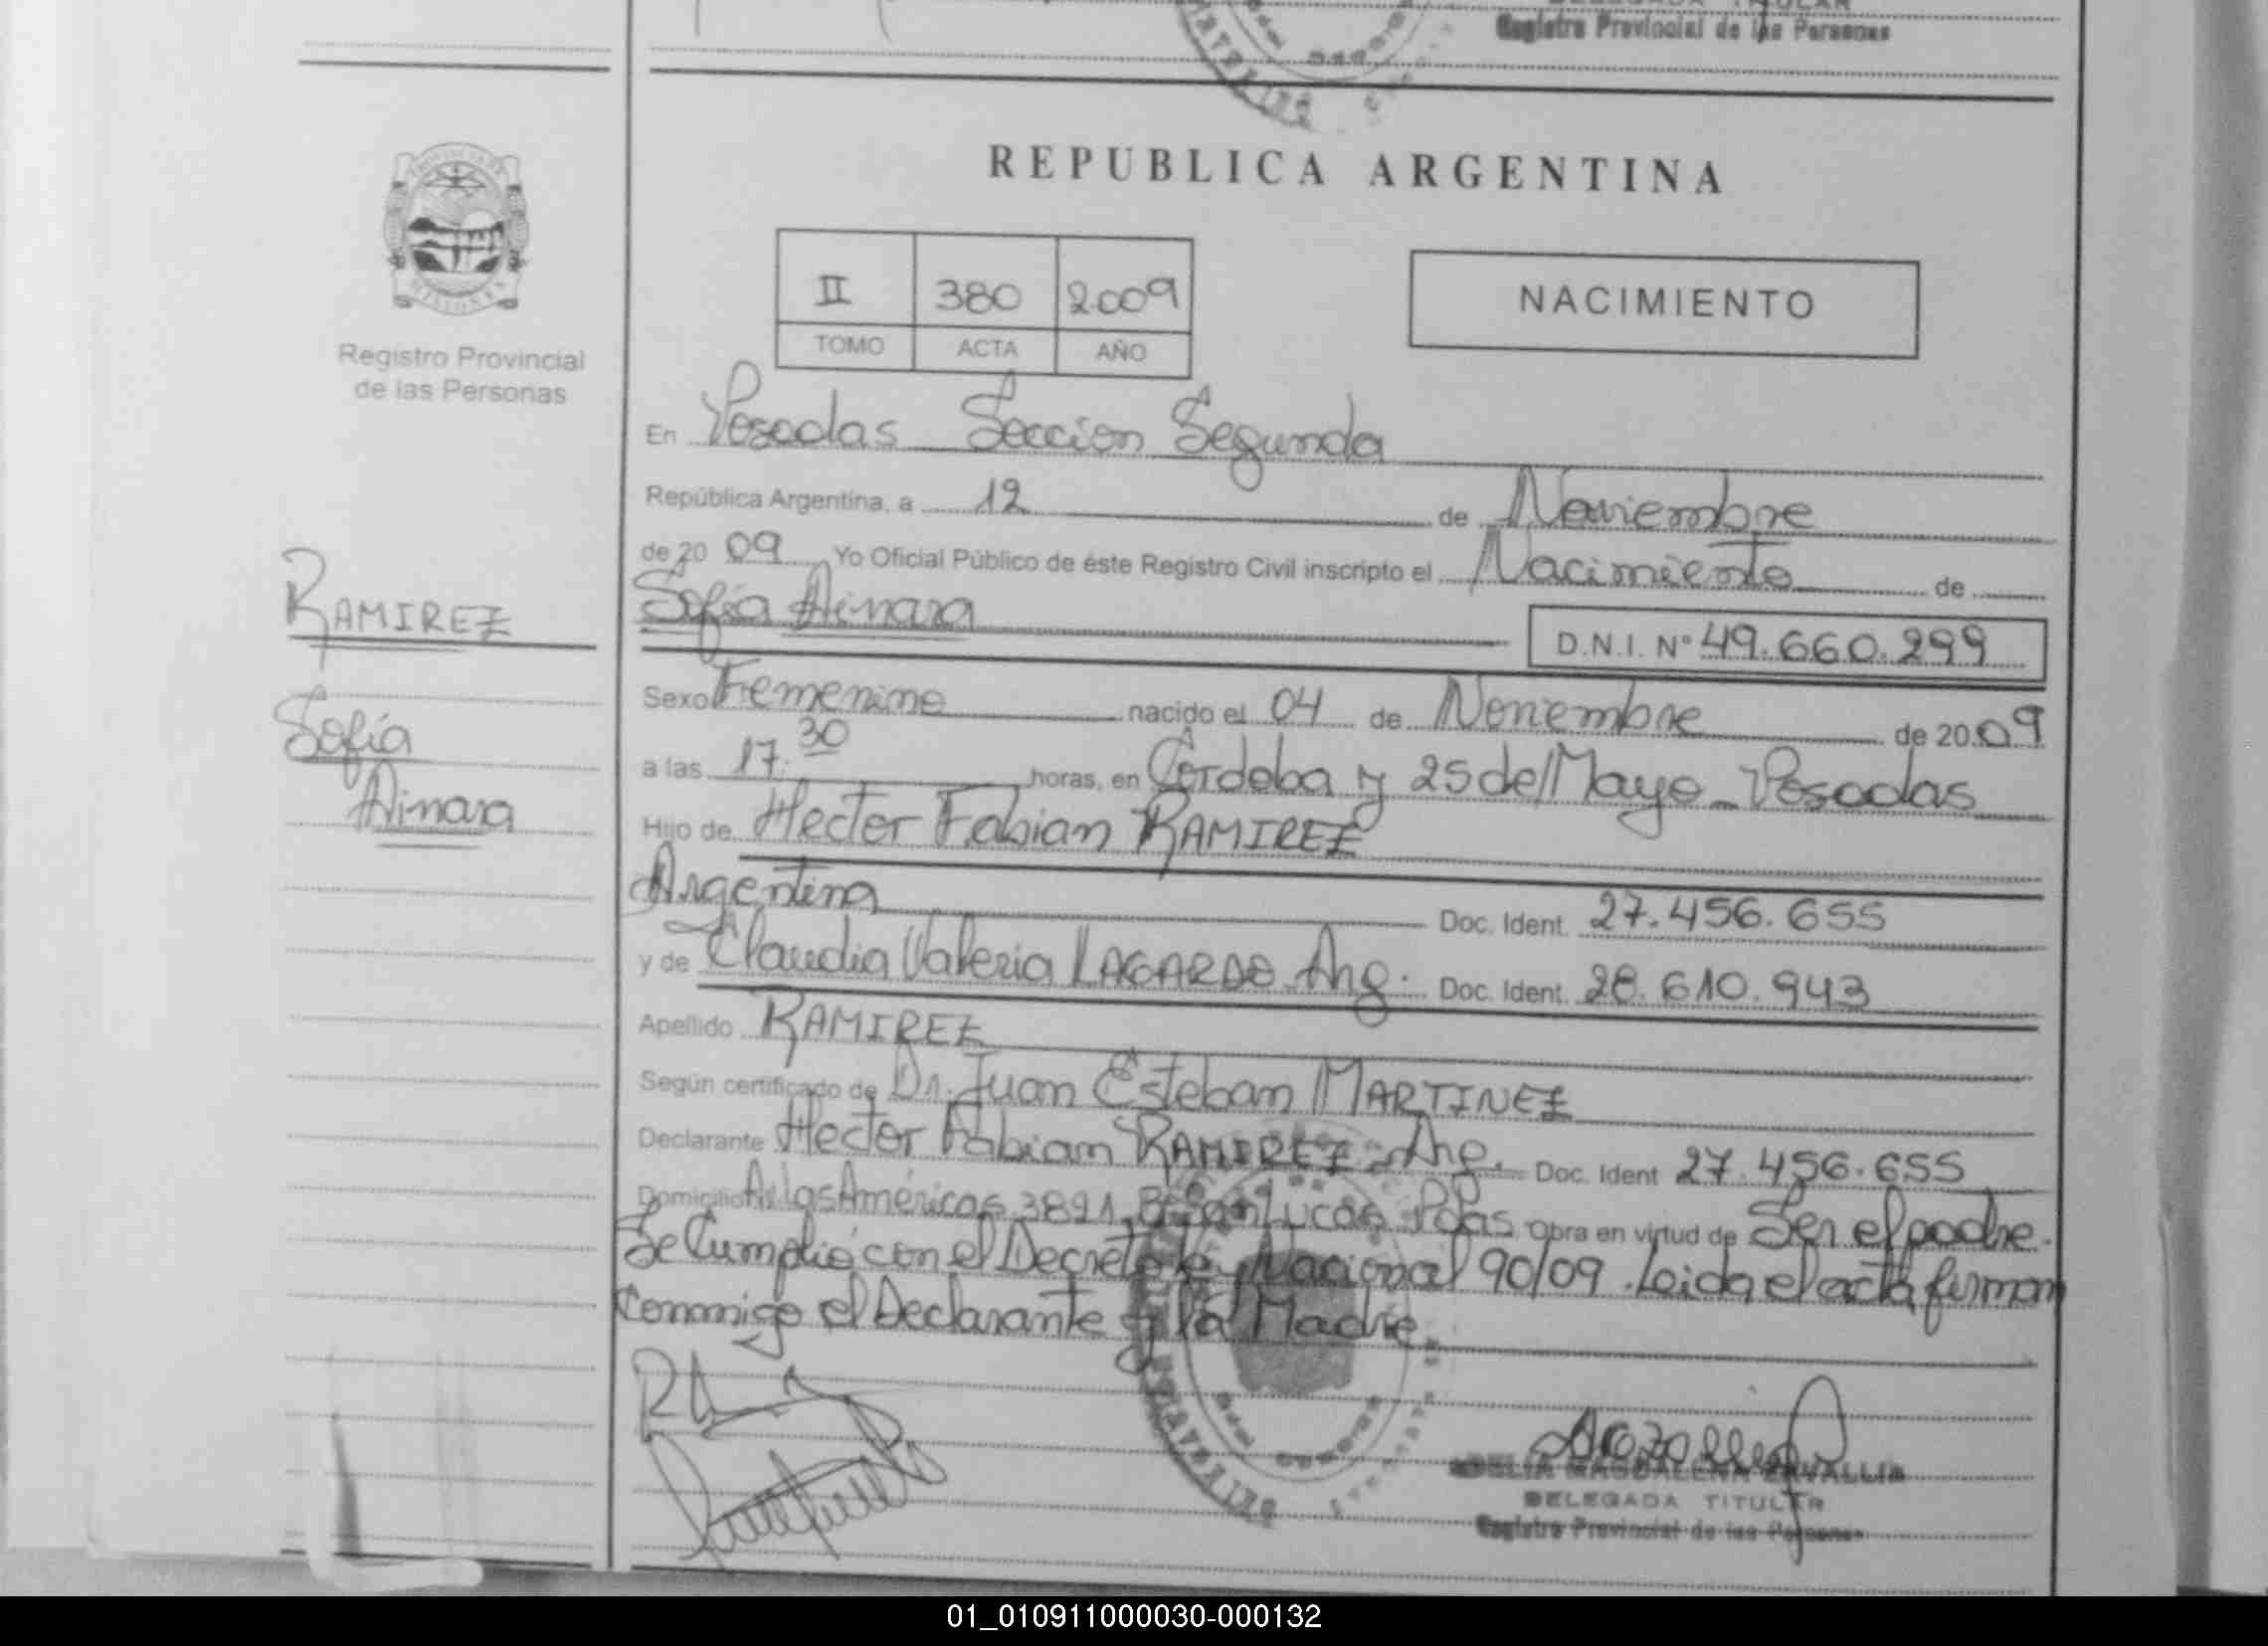 Registro Provincial de las Personas
REPUBLICA ARGENTINA
II 380 2009
TOMO ACTA AÑO
NACIMIENTO
Registro Provincial
de las Personas
En Posadas Seccion Segunda
República Argentina, a 12 de Noviembre
de 20 09 Yo Oficial Público de éste Registro Civil inscripto el Nacimiento de
Sofía Ainara
D.N.I. Nº 49.660.299
RAMIREZ
Sofía
Ainara
Sexo Femenino nacido el 04 de Noviembre de 20 09
a las 17.30 horas, en Córdoba y 25 de Mayo - Posadas
Hijo de Hector Fabian RAMIREZ
Argentina Doc. Ident. 27.456.655
y de Claudia Valeria LAGARDO Arg. Doc. Ident. 28.610.943
Apellido RAMIREZ
Según certificado de Dr. Juan Esteban MARTINEZ
Declarante Hector Fabian RAMIREZ - Arg. Doc. Ident 27.456.655
Domicilio Av. las Américas 3891 Bº San Lucas Pdas Obra en virtud de Ser el padre.
Se Cumplió con el Decreto Nacional 90/09. Leida el acta firman
Conmigo el Declarante y la Madre.
DELEGADA TITULAR
Registro Provincial de las Personas
01_010911000030-000132